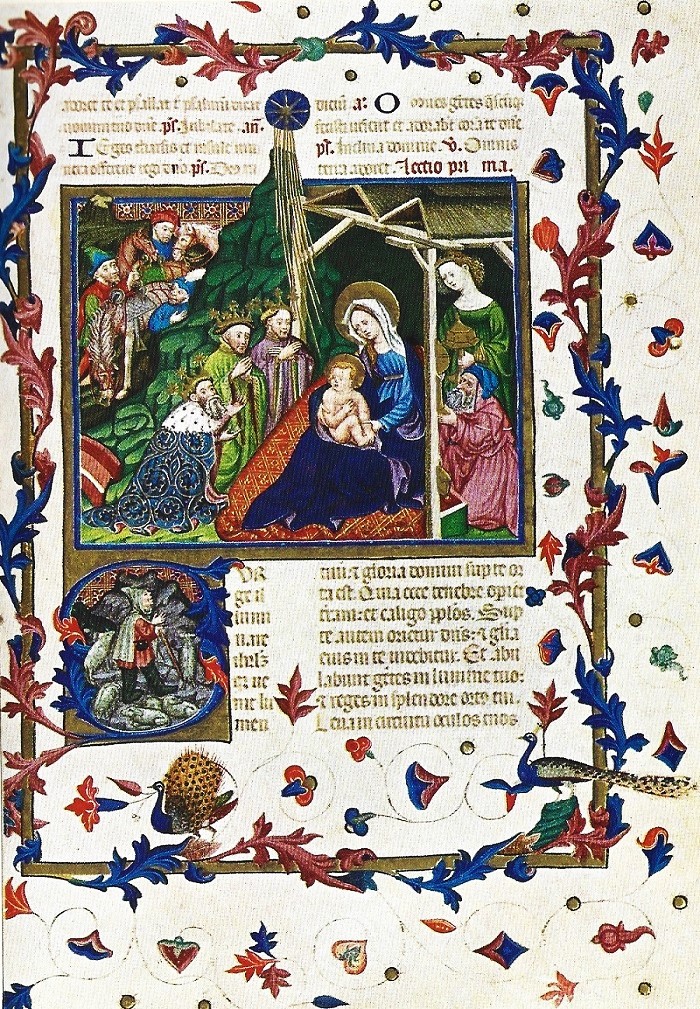 adoret te et psallat t̄ psalmū dicat
nomini tuo dn̄e. ps̄. Jubilate. an̄.
Eges tharsis et insule mu
nera offerent regi dn̄o. ps̄. Deus
dicium a: Omnes gētes
fecisti venient et adorabt̄ corā te dn̄e
ps̄. Inclina domine. v. Omnis
terra adoret. Lectio pri ma.
SUR
ge il
lumi
nare
ue
lu
men
tuū: ⁊ gloria domini sup te or
ta est. Quia ecce tenebre
terram: et caligo pplos. Sup
te autem orietur dn̄s: ⁊ glīa
eius in te videbitur. Et ābu
labunt gētes in lumine tuo:
⁊ reges in splendore tui.
Leua in circuitu oculos tuos